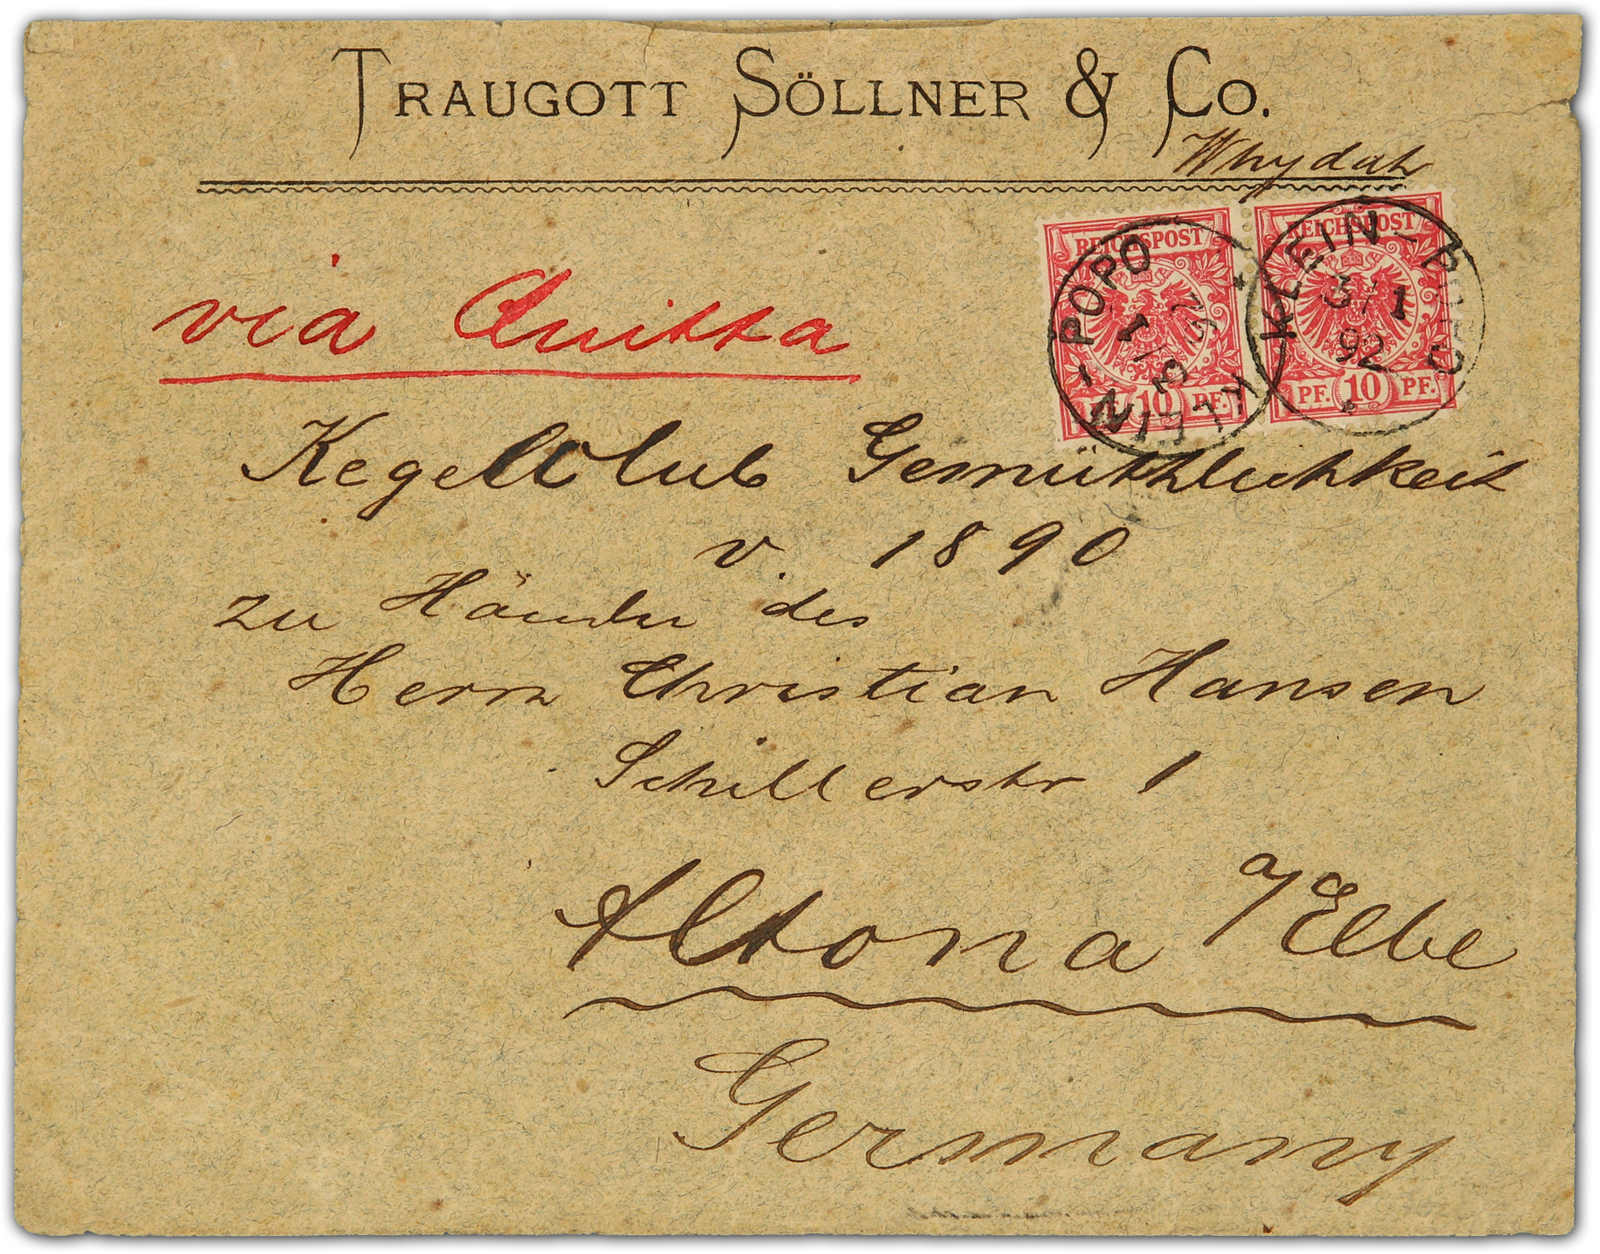 TRAUGOTT SÖLLNER & Co.
Whydah
REICHSPOST
PF. 10 PF.
REICHSPOST
PF. 10 PF.
KLEIN-POPO
3/1
92
KLEIN-POPO
3/1
92
via Quitta
Kegelclub Gemüthlichkeit
v. 1890
zu Händen des
Herrn Christian Hansen
Schillerstr 1
Altona a/Elbe
Germany